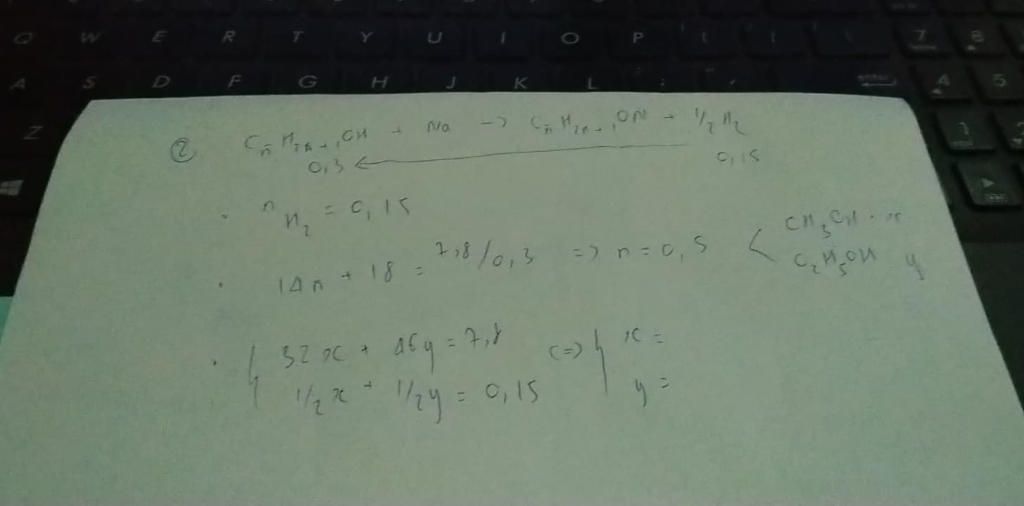 Q W E R T Y U I O P 7 8
A S D F G H J K L 4 5
Z
② Cn̄H2n̄+1OH + Na -> Cn̄H2n̄+1ON + 1/2 H2
0,3 0,15
. nH2 = 0,15
. 14n + 18 = 7,8/0,3 => n = 0,5 < CH3OH x
C2H5OH y
. { 32x + 46y = 7,8 <=> { x =
1/2x + 1/2y = 0,15 y =